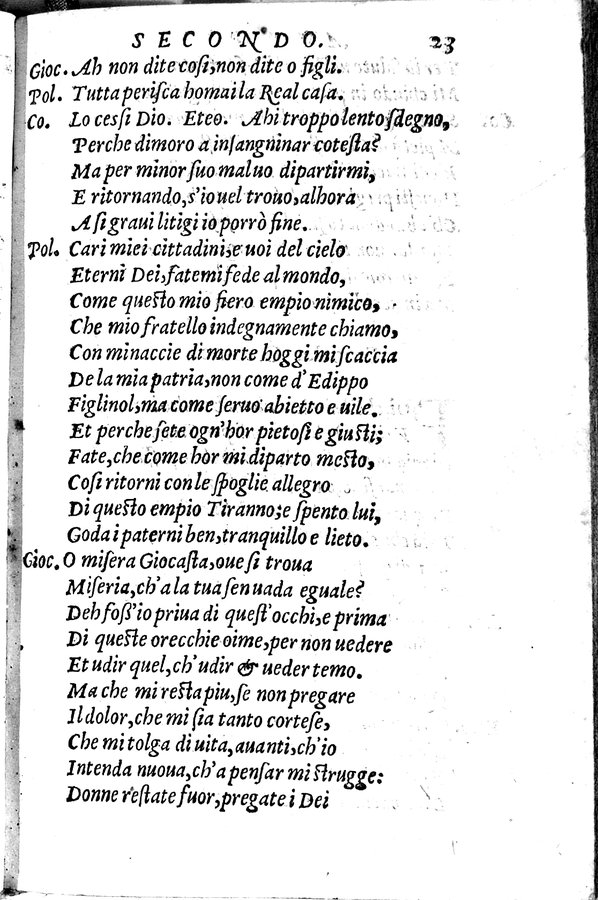 SECONDO. 23
Gioc. Ah non dite cosi, non dite o figli.
Pol. Tutta perisca homai la Real casa.
Co. Lo cessi Dio. Eteo. Ahi troppo lento sdegno,
Perche dimoro a insanguinar cotesta?
Ma per minor suo mal uo dipartirmi,
E ritornando, s'io uel trouo, alhora
A si graui litigi io porrò fine.
Pol. Cari miei cittadini, e uoi del cielo
Eterni Dei, fatemi fede al mondo,
Come questo mio fiero empio nimico,
Che mio fratello indegnamente chiamo,
Con minaccie di morte hoggi mi scaccia
De la mia patria, non come d'Edippo
Figliuol, ma come seruo abietto e uile.
Et perche sete ogn'hor pietosi e giusti;
Fate, che come hor mi diparto mesto,
Cosi ritorni con le spoglie allegro
Di questo empio Tiranno; e spento lui,
Goda i paterni ben, tranquillo e lieto.
Gioc. O misera Giocasta, oue si troua
Miseria, ch'a la tua sen uada eguale?
Deh foss'io priua di quest'occhi, e prima
Di queste orecchie oime, per non uedere
Et udir quel, ch'udir & ueder temo.
Ma che mi resta piu, se non pregare
Il dolor, che mi sia tanto cortese,
Che mi tolga di uita, auanti, ch'io
Intenda nuoua, ch'a pensar mi strugge:
Donne restate fuor, pregate i Dei